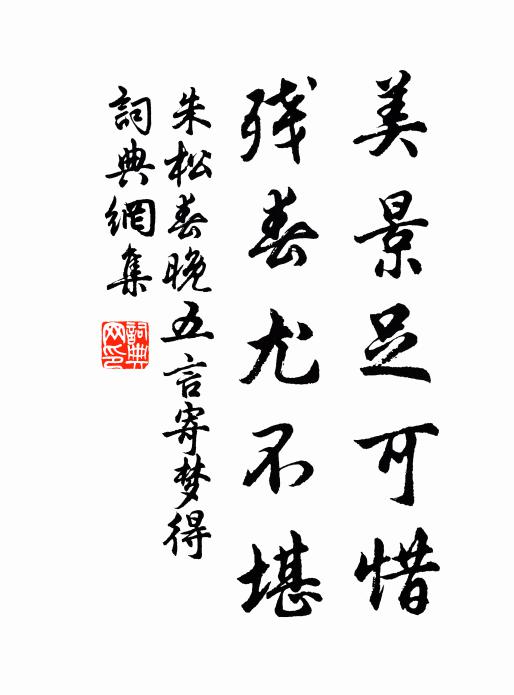 美景足可惜
残春尤不堪
朱松春晚五言寄梦得
詞典網集
詞典网印